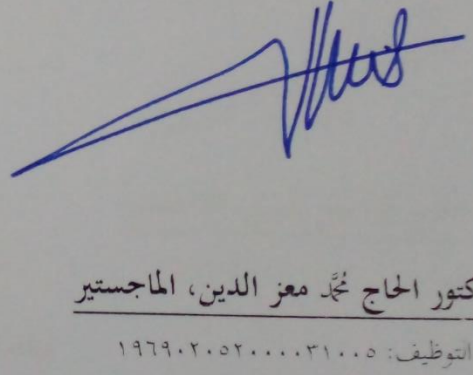 كتور الحاج مُحَمَّد معز الدين، الماجستير
التوظيف: ١٩٦٩٠٢٠٥٢٠٠٠٠٣١٠٠٥